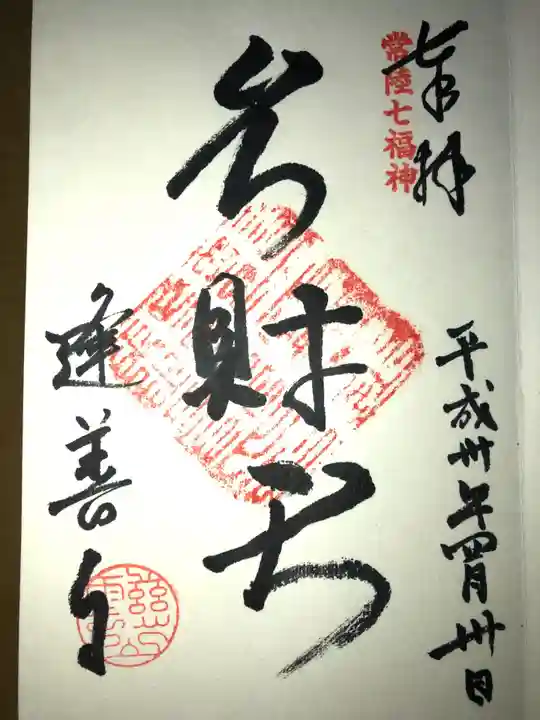 奉拝
常陸七福神
平成卅年四月卅日
弁財天
逢善寺